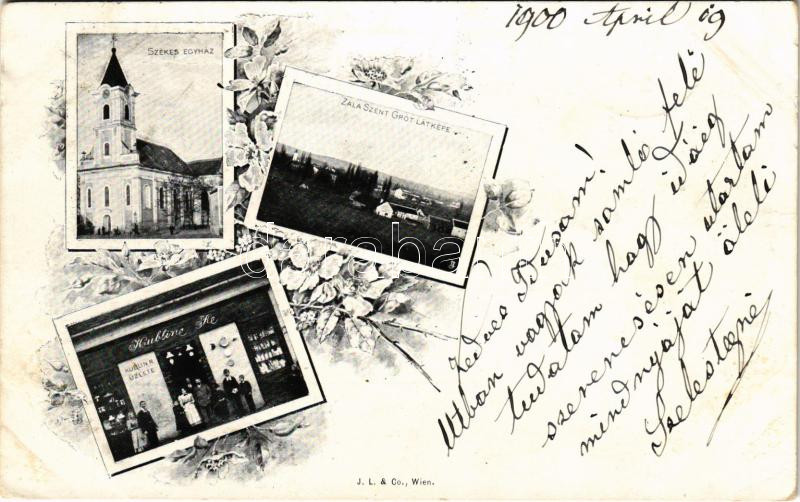 1900 April 19
SZÉKES EGYHÁZ
ZALA SZENT GRÓT LÁTKÉPE
Kubline Ke
KUBLINÉ
ÜZLETE
Kedves Idusam!
Utban vagyok samló felé
tudatom hogy
szerencsésen utaztam
mindnyáját öleli
darabanth
J. L. & Co., Wien.